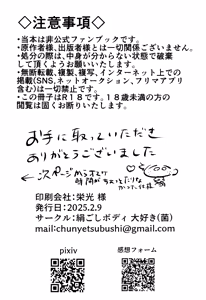 ◇注意事項◇
・当本は非公式ファンブックです。
・原作者様、出版者様とは一切関係ございません。
・処分の際は、中身が分からない状態で破棄
して頂くようお願いいたします。
・無断転載、複製、複写、インターネット上での
掲載(SNS、ネットオークション、フリマアプリ
含む)は一切禁止です。
・この冊子はR18です。18歳未満の方の
閲覧は固くお断りいたします。
お手に取っていただき
ありがとうございました
印刷会社:栄光 様
発行日:2025.2.9
サークル:絹ごしボディ 大好き(菌)
mail:chunyetsubushi@gmail.com
pixiv
感想フォーム